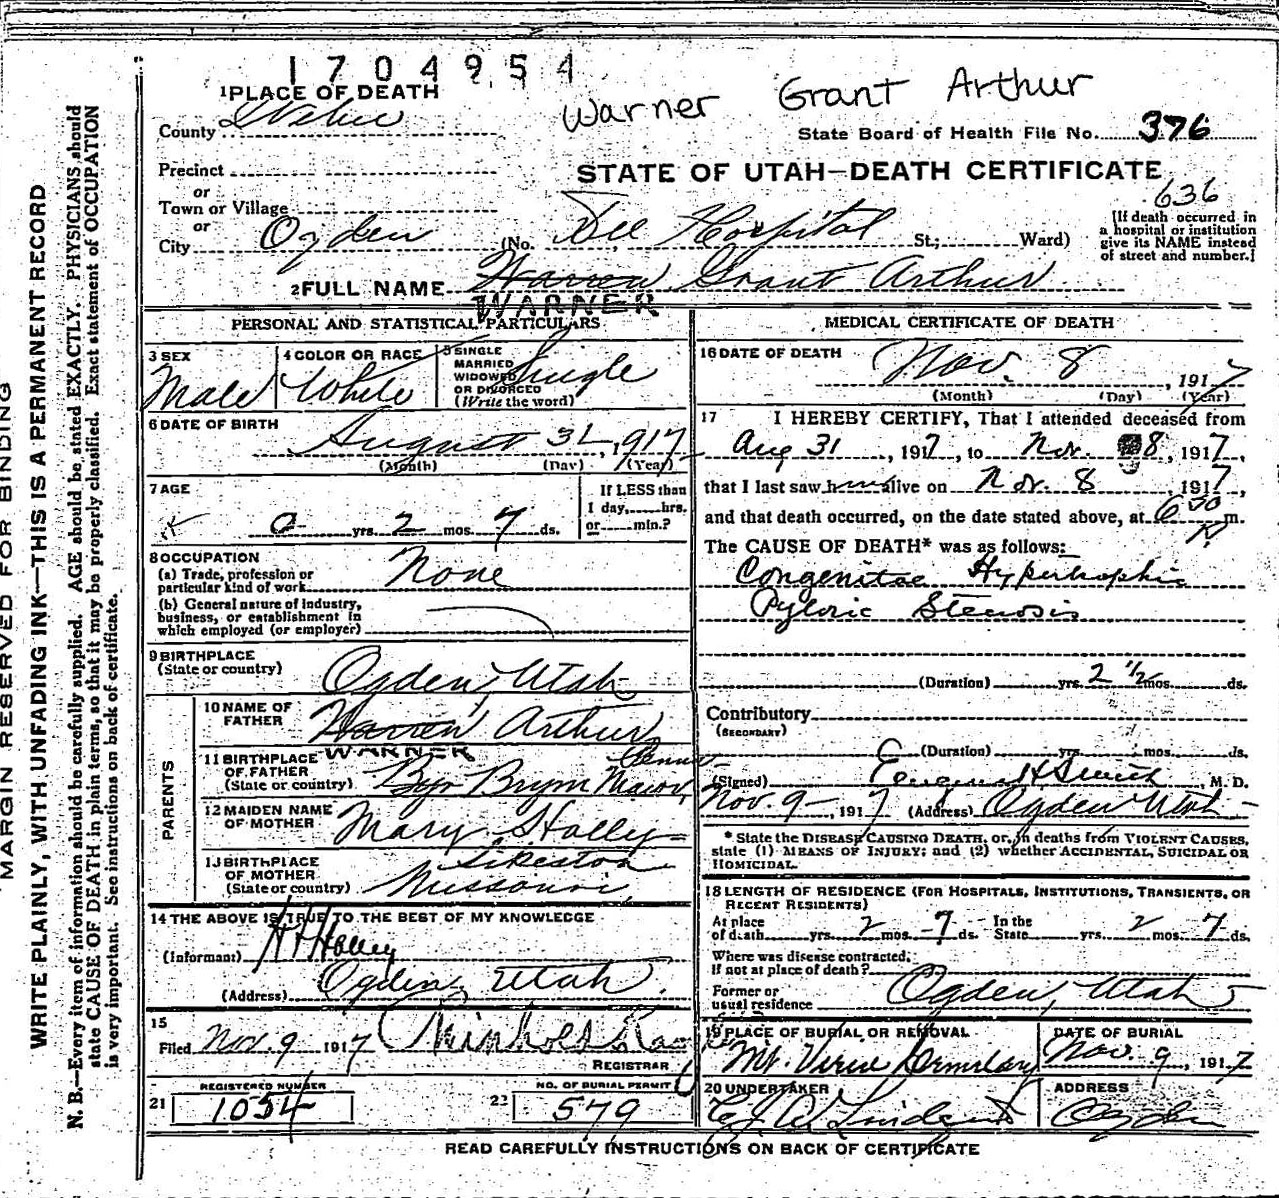 1704954
Warner Grant Arthur
1 PLACE OF DEATH
County Weber
State Board of Health File No. 376
Precinct
or
STATE OF UTAH—DEATH CERTIFICATE
636
Town or Village
or
City Ogden (No. Dee Hospital St.; Ward)
[If death occurred in
a hospital or institution
give its NAME instead
of street and number.]
2 FULL NAME Warren Grant Arthur
WARNER
PERSONAL AND STATISTICAL PARTICULARS
3 SEX
Male
4 COLOR OR RACE
White
5 SINGLE
MARRIED
WIDOWED
OR DIVORCED
(Write the word)
Single
6 DATE OF BIRTH
August 31, 1917
(Month) (Day) (Year)
7 AGE
0 yrs. 2 mos. 7 ds.
If LESS than
1 day, hrs.
or min.?
8 OCCUPATION
(a) Trade, profession or
particular kind of work None
(b) General nature of industry,
business, or establishment in
which employed (or employer)
9 BIRTHPLACE
(State or country) Ogden, Utah
PARENTS
10 NAME OF
FATHER Warren Arthur
WARNER
11 BIRTHPLACE
OF FATHER
(State or country)
12 MAIDEN NAME
OF MOTHER Mary Holley
13 BIRTHPLACE
OF MOTHER
(State or country) Sikeston
Missouri
14 THE ABOVE IS TRUE TO THE BEST OF MY KNOWLEDGE
(Informant) Holley
(Address) Ogden, Utah.
15
Filed Nov. 9 1917
REGISTRAR
REGISTERED NUMBER
21 1054
NO. OF BURIAL PERMIT
22 579
MEDICAL CERTIFICATE OF DEATH
16 DATE OF DEATH
Nov. 8, 1917
(Month) (Day) (Year)
17 I HEREBY CERTIFY, That I attended deceased from
Aug 31, 1917, to Nov. 8, 1917,
that I last saw him alive on Nov. 8 1917,
and that death occurred, on the date stated above, at 6 30 m.
The CAUSE OF DEATH* was as follows:
Congenital Hypertrophic
Pyloric Stenosis
(Duration) yrs. 2 1/2 mos. ds.
Contributory
(SECONDARY)
(Duration) yrs. mos. ds.
(Signed) Eugene H Smith M. D.
Nov. 9, 1917 (Address) Ogden Utah
* State the DISEASE CAUSING DEATH, or, in deaths from VIOLENT CAUSES,
state (1) MEANS OF INJURY; and (2) whether ACCIDENTAL, SUICIDAL OR
HOMICIDAL.
18 LENGTH OF RESIDENCE (FOR HOSPITALS, INSTITUTIONS, TRANSIENTS, OR
RECENT RESIDENTS)
At place
of death yrs. 2 mos. 7 ds. In the
State yrs. 2 mos. 7 ds.
Where was disease contracted,
if not at place of death?
Former or
usual residence Ogden, Utah
19 PLACE OF BURIAL OR REMOVAL
DATE OF BURIAL
Nov. 9, 1917
20 UNDERTAKER
ADDRESS
Ogden
READ CAREFULLY INSTRUCTIONS ON BACK OF CERTIFICATE
MARGIN RESERVED FOR BINDING
WRITE PLAINLY, WITH UNFADING INK—THIS IS A PERMANENT RECORD
N. B.—Every item of information should be carefully supplied. AGE should be stated EXACTLY. PHYSICIANS should
state CAUSE OF DEATH in plain terms, so that it may be properly classified. Exact statement of OCCUPATION
is very important. See instructions on back of certificate.